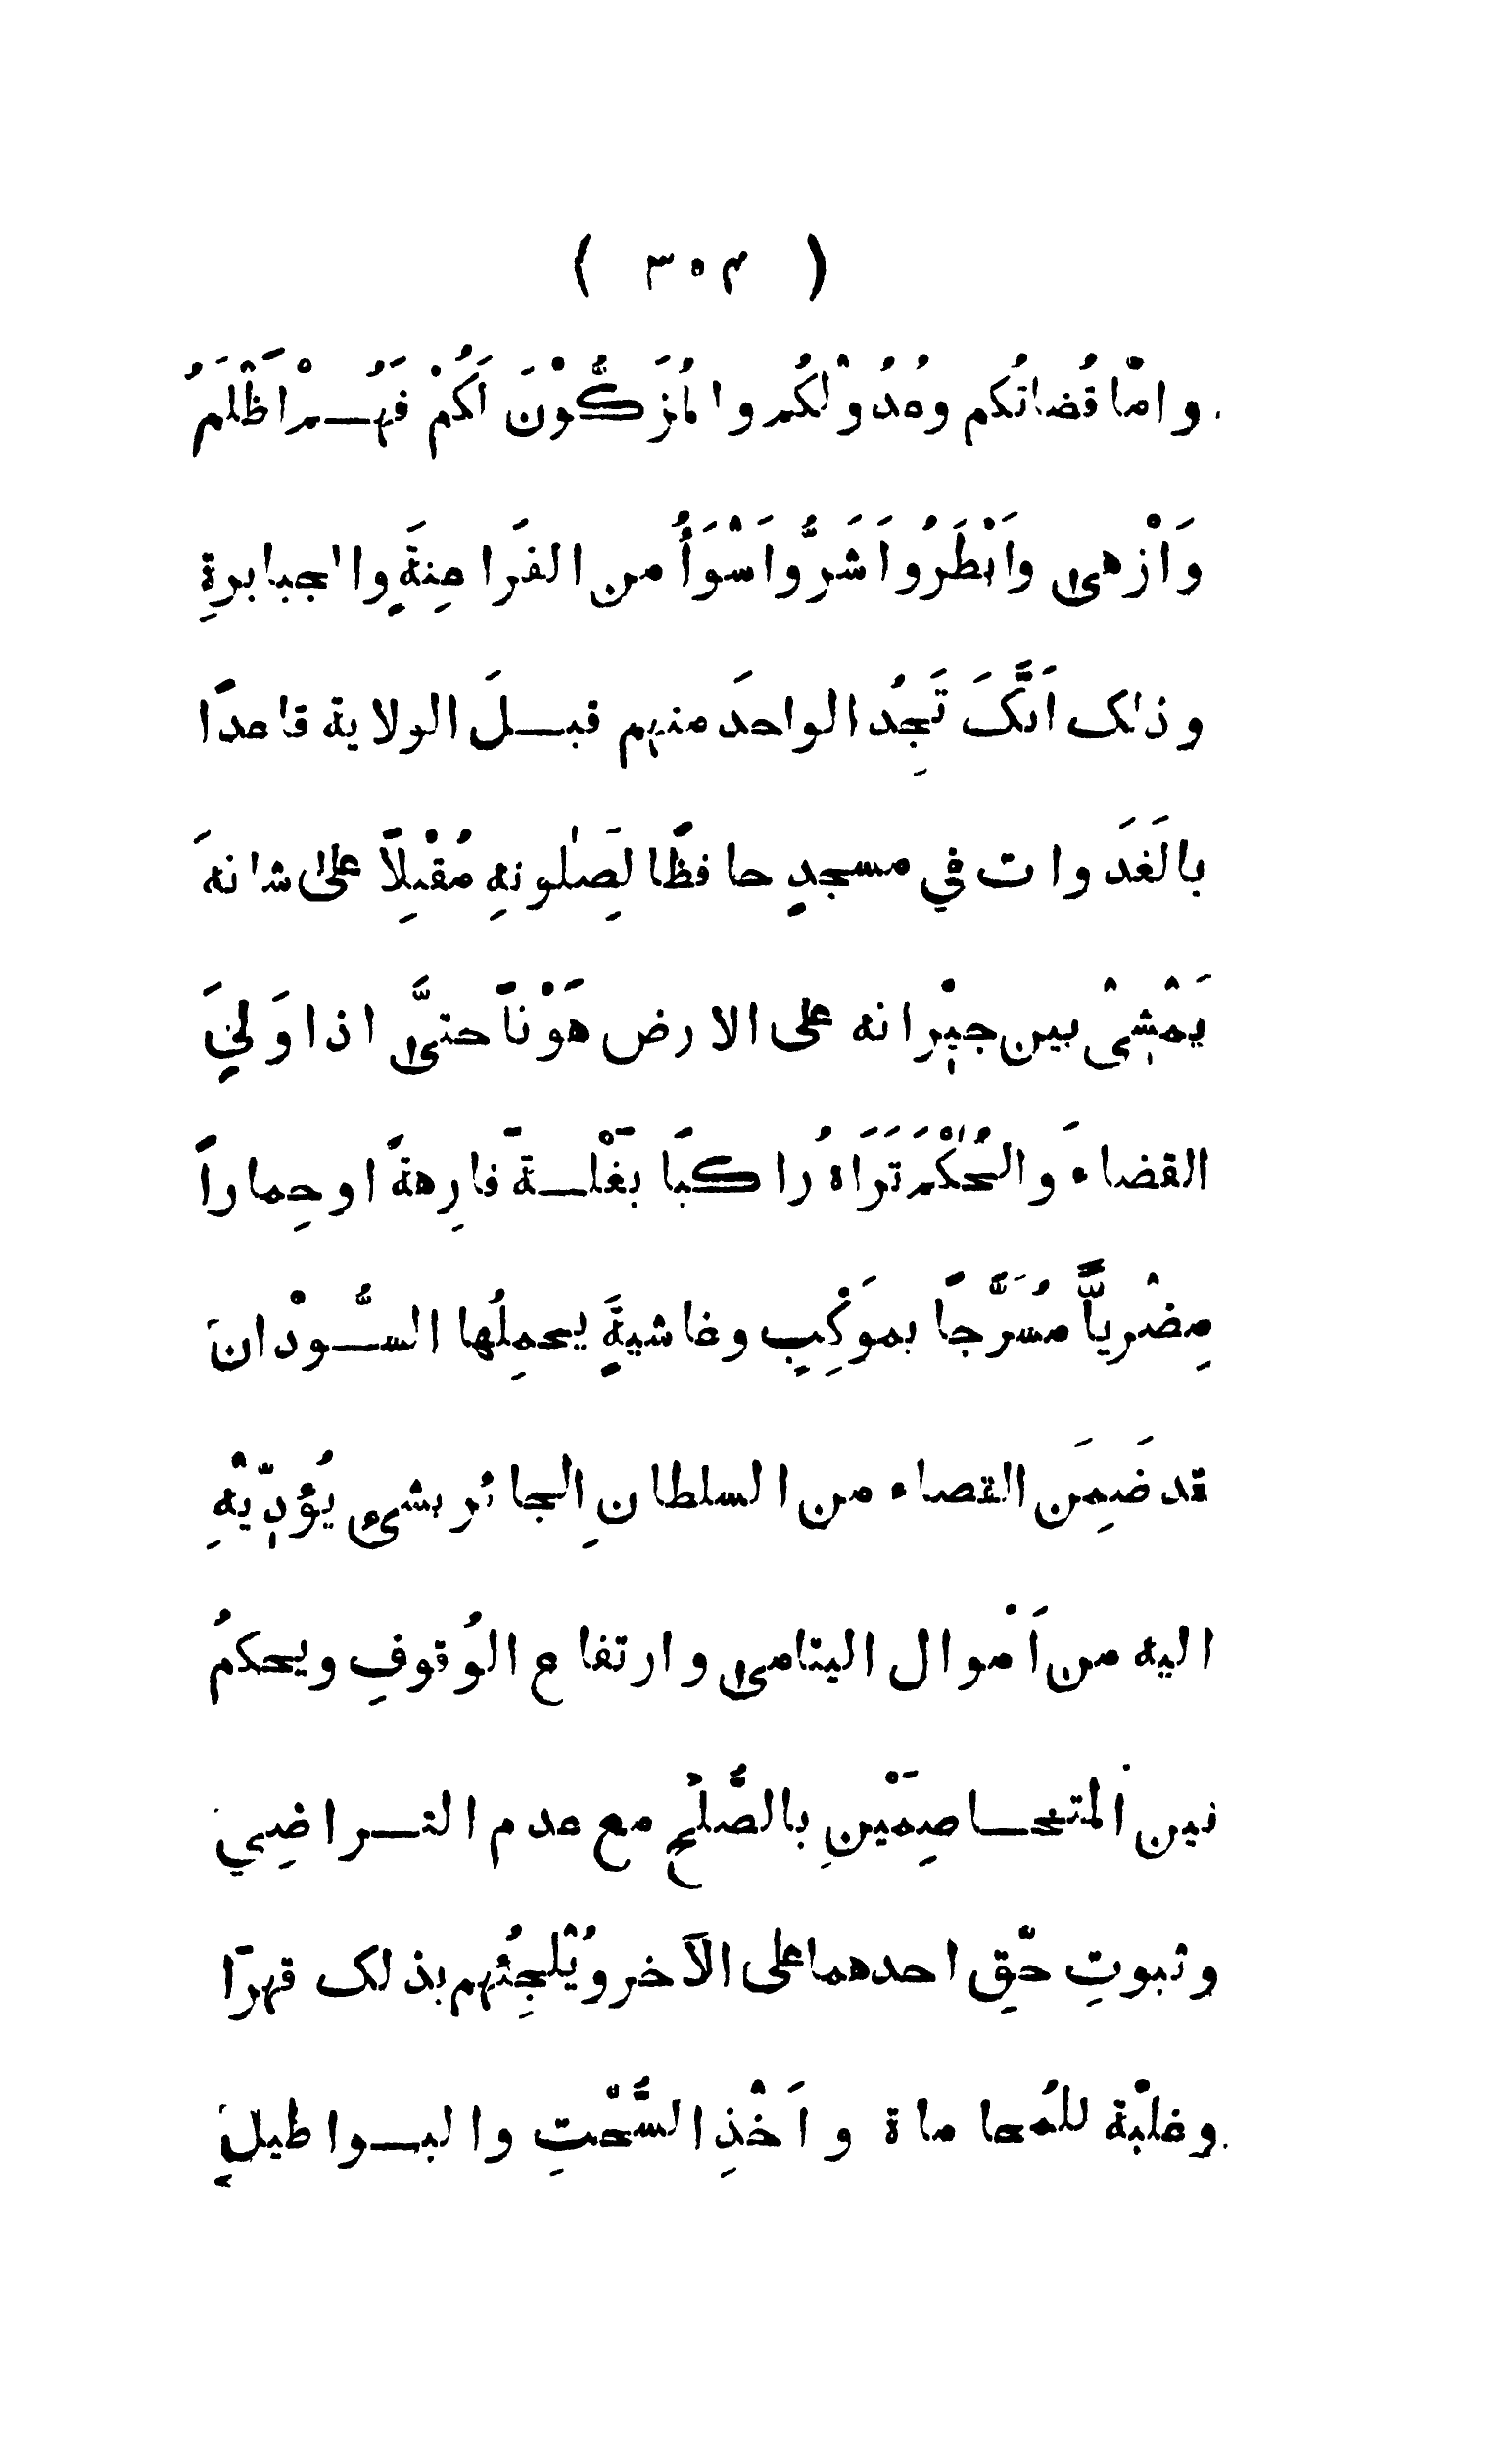 ( ٣٠٤ )
وامّا قُضاتُكم وعُدُوْلُكُم والمُزَكُّوْنَ لَكُمْ فَهُمْ اَظْلَمُ
وَاَزْهىٰ واَبْطَرُ واَشَرُّ واَسْوَأُ من الفَراعِنَةِ والجبابرةِ
وذلك اَنَّكَ تَجِدُ الواحدَ منهم قبلَ الولاية قاعدًا
بالغَدَوات في مسجدٍ حافظًا لِصَلٰوتهِ مُقْبِلاً علىٰ شانهَ
يَمْشِيْ بين جيْرانه على الارض هَوْناً حتىَّ اذا وَلِيَ
القضاءَ والحُكْمَ تَرَاهُ راكبًا بَغْلةً فارِهةً او حِماراً
مِصْرياًّ مُسَرَّجاً بموَكِبٍ وغاشيةٍ يحمِلُها السُّوْدانَ
قد ضَمِنَ القضاء من السلطانِ الجائر بشىءٍ يُؤدِّيْهِ
اليه من اَمْوال اليتامىٰ وارتفاع الوُقوفِ ويحكمُ
بين المتخاصِمَيْنِ بالصُّلْحِ مع عدم التراضِي
وثبوتِ حَّقِ احدهما على الآخر ويُلْجِئُهم بذلك قهرًا
وغلبْة للمُحاماة واَخْذِ السُّحْتِ والبواطيلِ